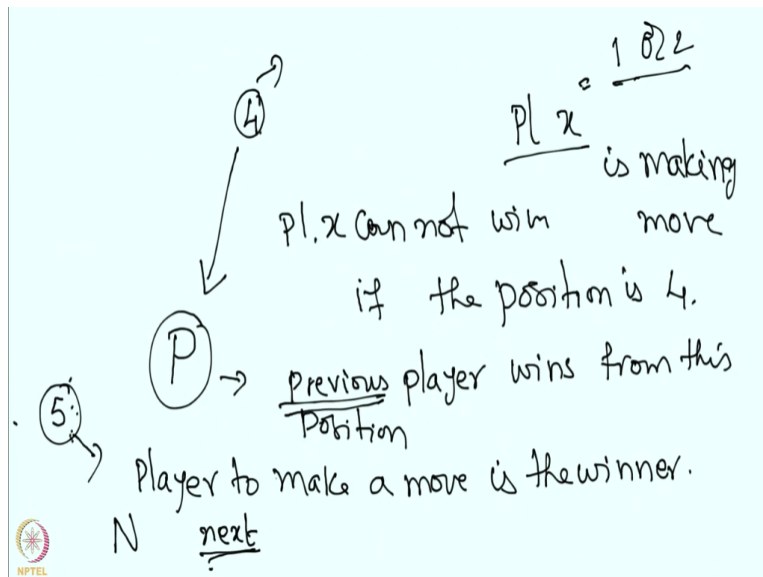 1 or 2
4
Pl x
is making
Pl. x can not win move
if the position is 4.
P
previous player wins from this
Position
5
Player to make a move is the winner.
N next
NPTEL